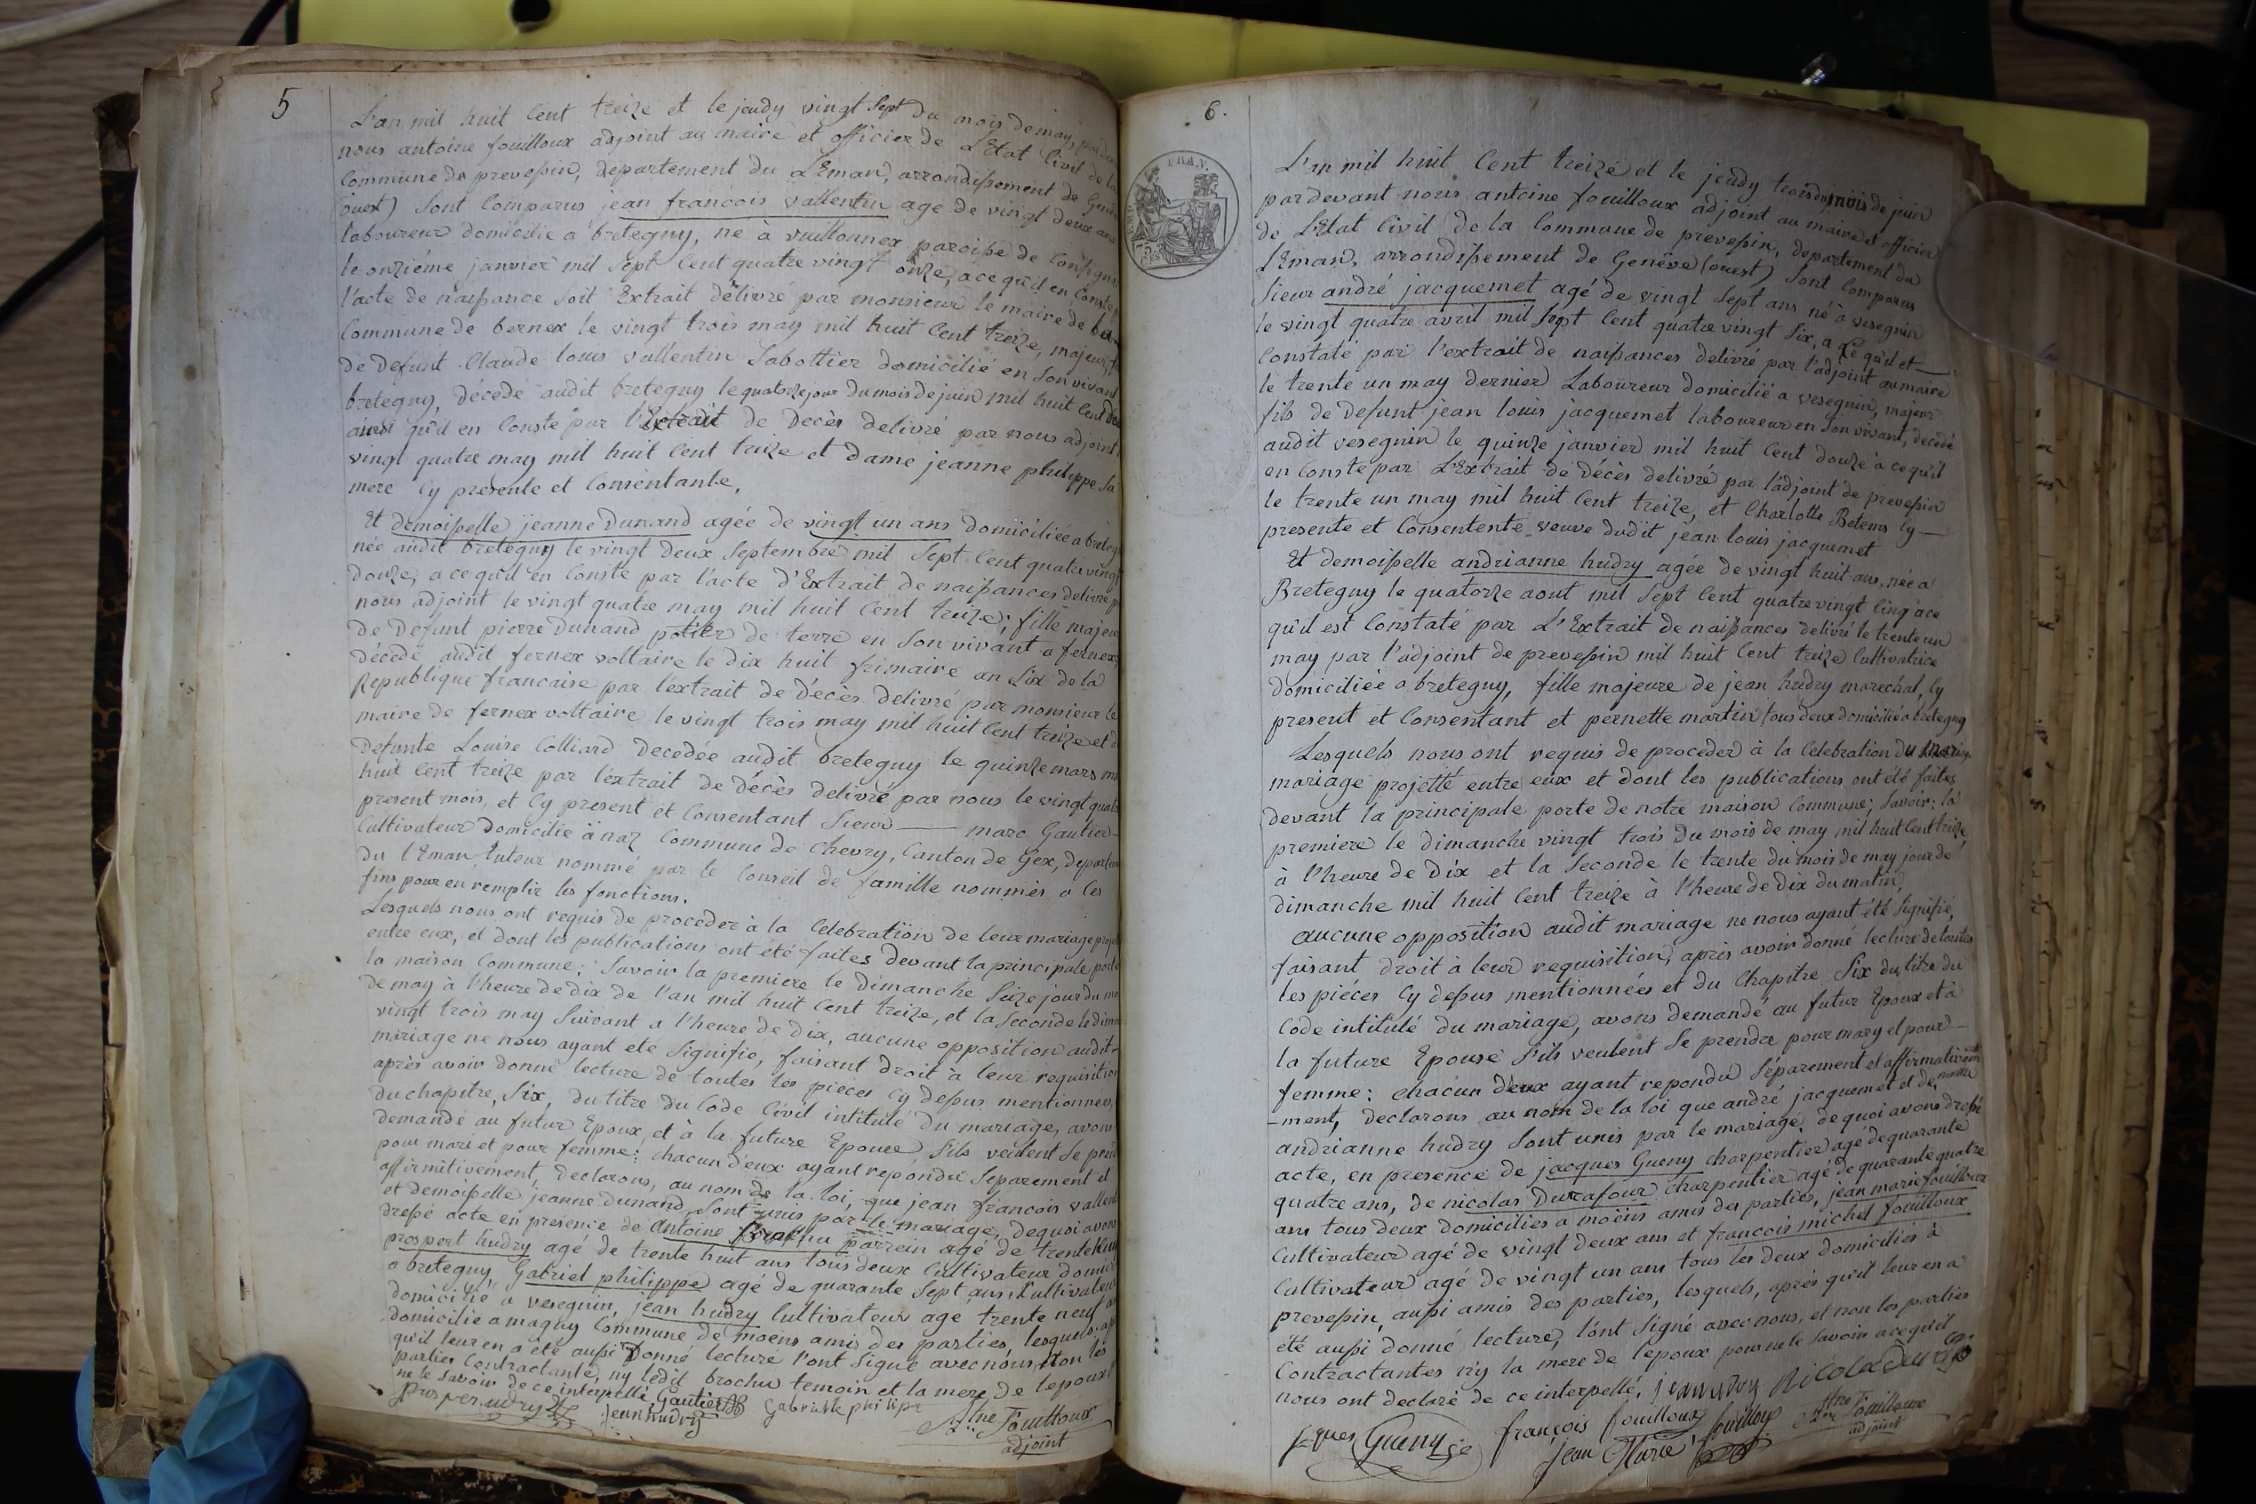 5
L'an mil huit Cent treize et le jeudy vingt sept du mois de may, par dev
nous antoine fouilloux adjoint au maire et officier de L'Etat Civil de la
Commune de prevessin, departement du LEman, arrondissement de Genève
ouest) Sont Comparus jean françois vallentin agé de vingt deux ans
laboureur domicilié a bretegny, né à vuillonnex paroisse de Confignon
le onzième janvier mil Sept Cent quatre vingt onze, a ce qu'il en Conste par
l'acte de naissance soit Extrait délivré par monsieur le maire de la
Commune de bernex le vingt trois may mil huit Cent treize, majeur, fils
de defunt Claude louis vallentin Sabottier domicilié en Son vivant
bretegny, décédé audit bretegny le quatorze jour du mois de juin mil huit Cent
ainsi qu'il en Conste par l'Extrait de Decès delivré par nous adjoint
vingt quatre may mil huit Cent treize et Dame jeanne philippe Sa
mere Cy presente et Consentante.
Et demoiselle jeanne Dunand agée de vingt un ans domiciliée a breteg
née audit bretegny le vingt deux Septembre mil Sept Cent quatre vingt
douze, a ce qu'il en Conste par l'acte d'Extrait de naissances delivré p
nous adjoint le vingt quatre may mil huit Cent treize; fille majeure
de Defunt pierre Dunand potier de terre en Son vivant a fernex
décédé audit fernex voltaire le dix huit frimaire an Six de la
Republique francaise par l'extrait de Décès delivré par monsieur le
maire de fernex voltaire le vingt trois may mil huit Cent treize et d
defunte Louise Colliard Decedée audit bretegny le quinze mars mil
huit Cent treize par l'extrait de Décès delivré par nous le vingt quatre
present mois, et Cy present et Consentant Sieur — marc Gautier
Cultivateur domicilié à naz Commune de Chevry, Canton de Gex, departem
du lEman tuteur nommé par le Conseil de famille nommés a Ces
fins pour en remplir les fonctions.
Lesquels nous ont requis de procéder à la Celebration de leur mariage proje
entre eux, et dont les publications ont été faites devant la principale porte
la maison Commune; Savoir la premiere le Dimanche Seize jour du mo
de may à l'heure de dix de l'an mil huit Cent treize, et la Seconde le dima
vingt trois may Suivant a l'heure de dix, aucune opposition audit
mariage ne nous ayant été Signifié, faisant droit à leur requisition
après avoir donné lecture de toutes les pieces Cy dessus mentionnées,
du chapitre, Six, du titre du Code Civil intitulé du mariage, avons
demandé au futur Epoux et à la future Epouse S'ils veulent Se prend
pour mari et pour femme: chacun d'eux ayant repondu Separement et
affirmativement, Declarons, au nom de la loi, que jean francois vallent
et demoiselle jeanne dunand, sont unis par le mariage, de quoi avons
dressé acte en presence de Antoine brochu parrein agé de trente huit
prospert hudry agé de trente huit ans tous deux Cultivateur domici
a bretegny, Gabriel philippe agé de quarante Sept ans, Cultivateur
domicilié a vesegnin, jean hudry Cultivateur agé trente neuf an
domicilié a magny Commune de moens amis des parties, lesquels, ap
qu'il leur en a été aussi Donné lecture l'ont Signé avec nous, Non les
parties Contractante, ny ledit brochu temoin et la mere de l'epoux p
ne le Savoir de ce interpellé,
Gautier
Prosper udry
jean hudry
Gabrielle philipe
Antne Fouilloux
adjoint
6.
L'an mil huit Cent treize et le jeudy trois du mois de juin
pardevant nous antoine fouilloux adjoint au maire et officier
de L'Etat Civil de la Commune de prevessin, departement du
LEman, arrondissement de Genève (ouest) Sont Comparus
Sieur andré jacquemet agé de vingt Sept ans né à vesegnin
le vingt quatre avril mil Sept Cent quatre vingt Six, a Ce qu'il et —
Constaté par l'extrait de naissances delivré par l'adjoint au maire
le trente un may dernier Laboureur domicilié a vesegnin, majeur
fils de defunt jean louis jacquemet laboureur en Son vivant, décédé
audit vesegnin le quinze janvier mil huit Cent douze a ce qu'il
en Conste par L'Extrait de Décès delivré par l'adjoint de prevessin
le trente un may mil huit Cent treize, et Charlotte Betems Cy —
presente et Consentente veuve dudit jean louis jacquemet
Et demoiselle andrianne hudry agée de vingt huit ans, née a
Bretegny le quatorze aout mil Sept Cent quatre vingt Cinq a ce
qu'il est Constaté par L'Extrait de naissances delivré le trente un
may par l'adjoint de prevessin mil huit Cent treize Cultivatrice
domiciliée a bretegny, fille majeure de jean hudry marechal, Cy
present et Consentant et pernette martin tous deux domicilié a bretegny
Lesquels nous ont requis de proceder à la Celebration du
mariage projetté entre eux et dont les publications ont été faites
devant la principale porte de notre maison Commune; Savoir: la
premiere le dimanche vingt trois du mois de may mil huit Cent treize
à l'heure de Dix et la Seconde le trente du mois de may jour de
dimanche mil huit Cent treize à l'heure de Dix du matin,
aucune opposition audit mariage ne nous ayant été Signifié,
faisant droit à leur requisition, après avoir donné lecture de toutes
les piéces Cy dessus mentionnées et du Chapitre Six du titre du
Code intitulé du mariage, avons demandé au futur Epoux et à
la future Epouse S'ils veulent Se prendre pour mary et pour —
femme: chacun d'eux ayant repondu Séparement et affirmative
-ment, Declarons au nom de la loi que andré jacquemet et de
andrianne hudry Sont unis par le mariage, de quoi avons dressé
acte, en presence de jacques Gueny charpentier agé de quarante
quatre ans, de nicolas Durafour Charpentier agé de quarante quatre
ans tous deux domiciliés a moëns amis des parties, jean marie fouilloux
Cultivateur agé de vingt deux ans et francois michel fouilloux
Cultivateur agé de vingt un ans tous les deux domiciliés à
prevessin, aussi amis des parties, lesquels, après qu'il leur en a
été aussi donné lecture, l'ont Signé avec nous, et non les parties
Contractantes n'y la mere de l'epoux pour ne le Savoir a ce qu'il
nous ont declaré de ce interpellé.
jean udry
Nicola
Gueny
françois fouilloux
jean Marie fouilloux
Antne Fouilloux
adjoint